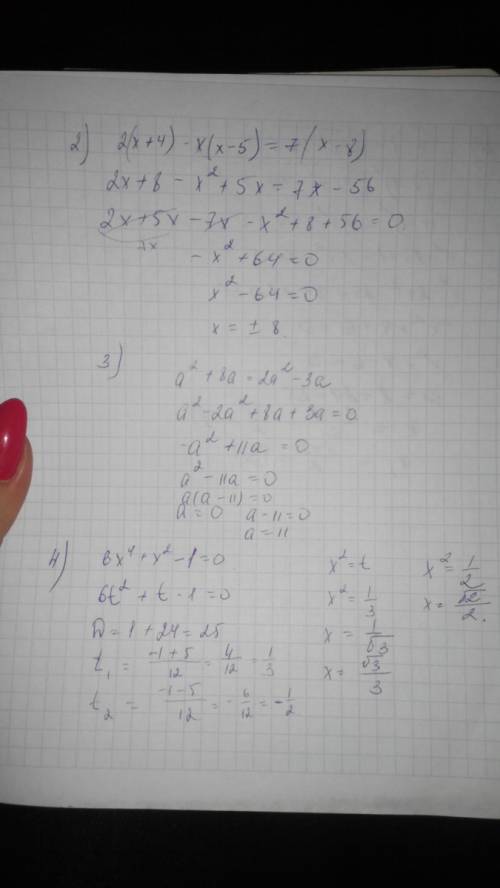 2) 2(x+4) - x(x-5) = 7(x-8)
2x+8 - x²+5x = 7x - 56
2x+5x - 7x - x²+8+56=0
7x
- x²+64=0
x²-64=0
x = ± 8
3)
a² + 8a = 2a² - 3a
a²-2a²+8a+3a=0
-a²+11a = 0
a² - 11a = 0
a(a-11)=0
a=0 a-11=0
a=11
4) 6x⁴+x²-1=0
6t² + t - 1=0
D = 1 + 24 = 25
t₁ = (-1+5)/12 = 4/12 = 1/3
t₂ = (-1-5)/12 = -6/12 = -1/2
x²=t
x²=1/3
x = 1/√3
x = √3/3
x²=1/2
x=√2/2.